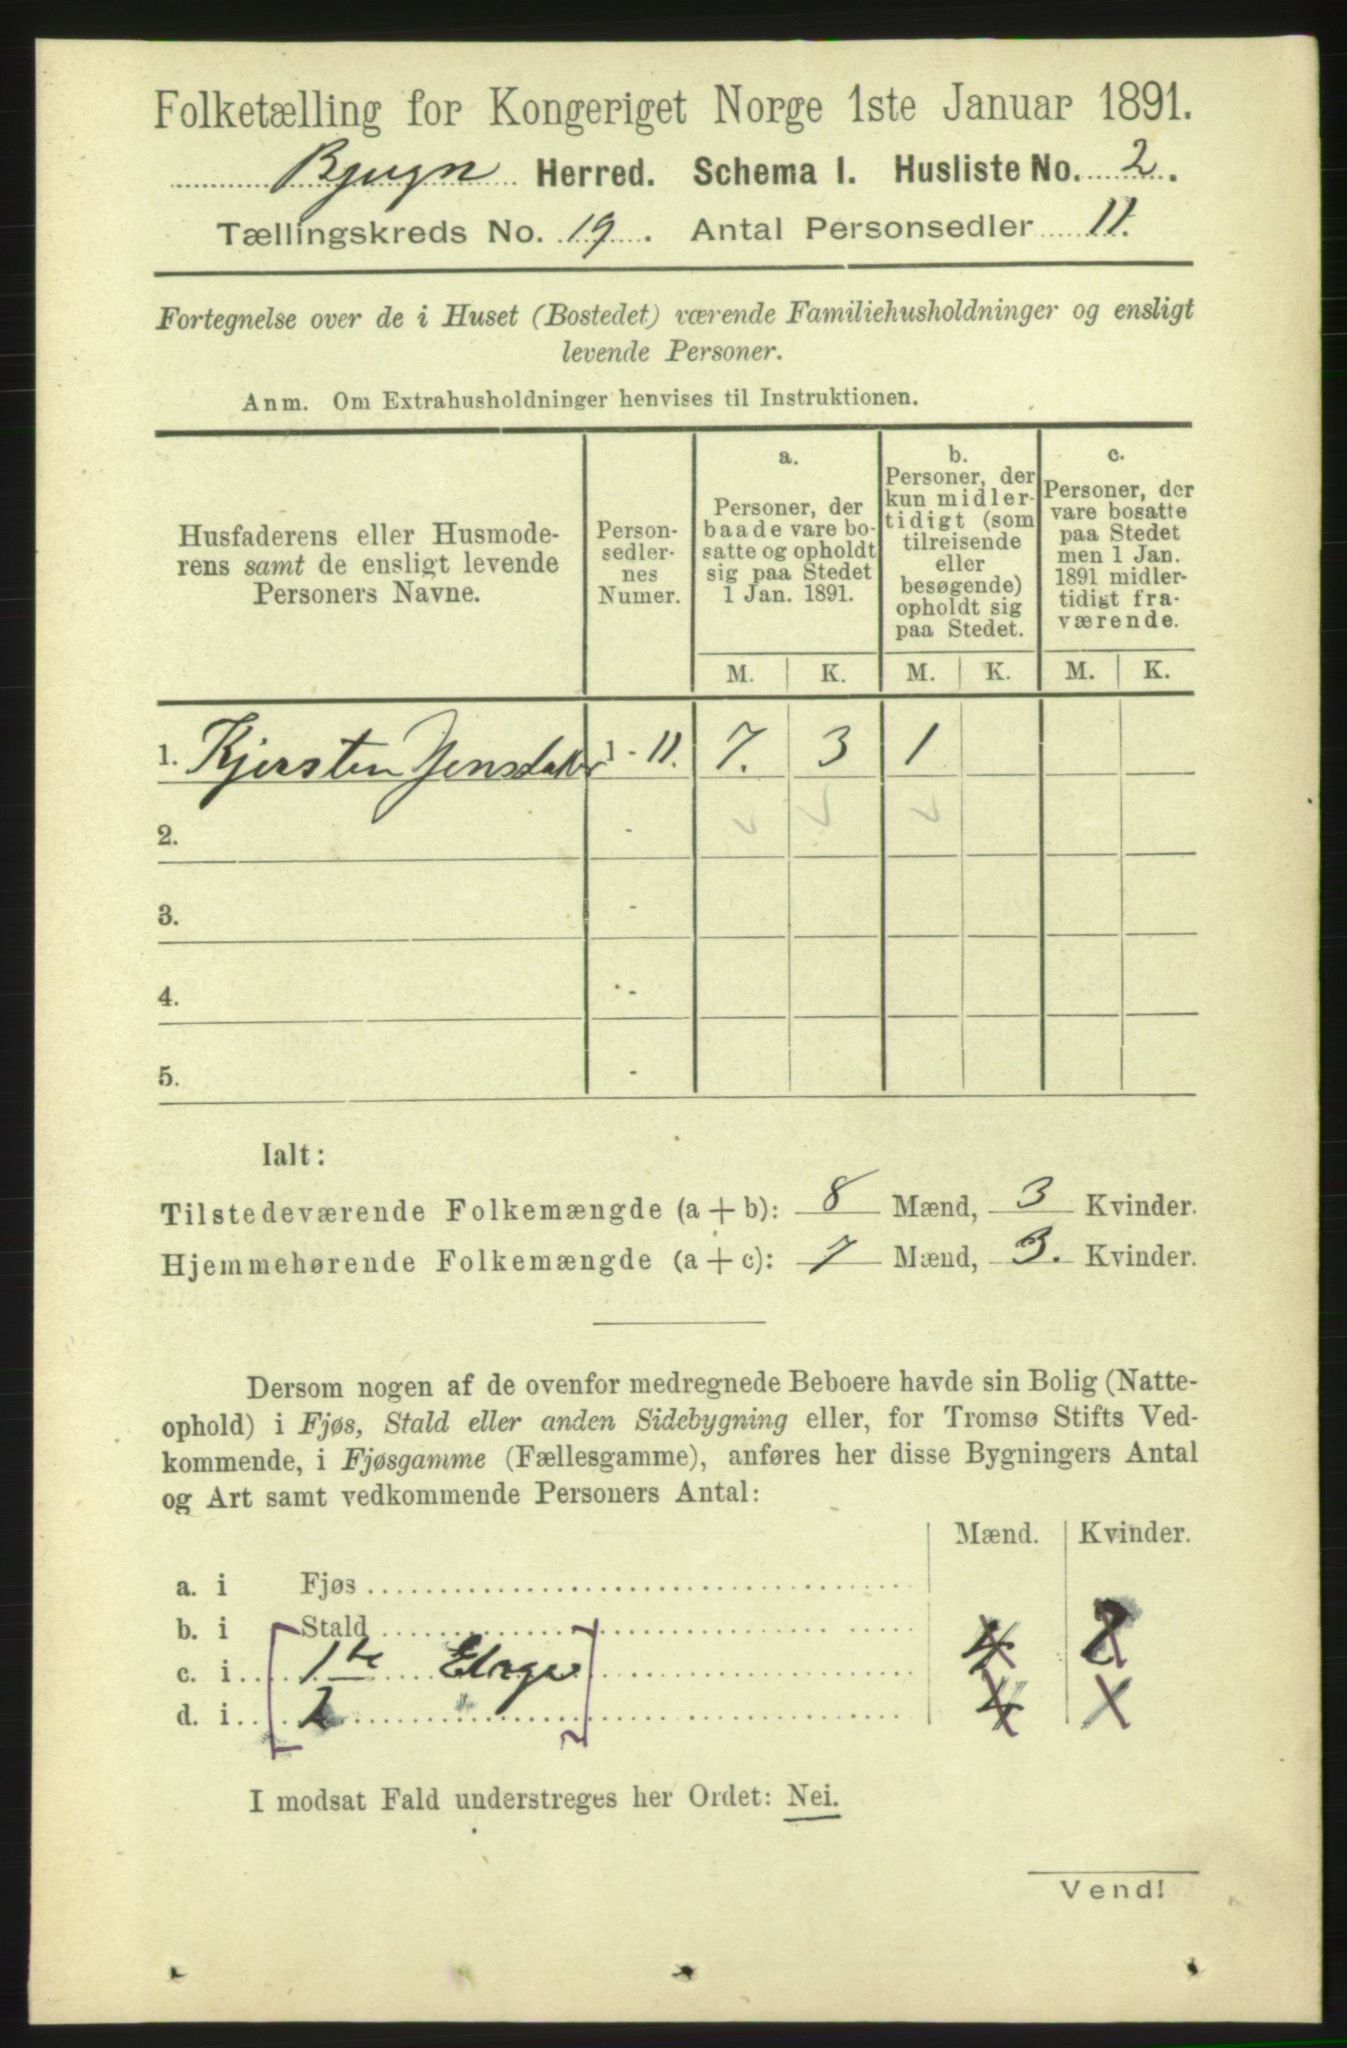 Folketælling for Kongeriget Norge 1ste Januar 1891.
Bjugn Herred. Schema I. Husliste No. 2.
Tællingskreds No. 19. Antal Personsedler 11.
Fortegnelse over de i Huset (Bostedet) værende Familiehusholdninger og ensligt
levende Personer.
Anm. Om Extrahusholdninger henvises til Instruktionen.
Husfaderens eller Husmode-
rens samt de ensligt levende
Personers Navne.
Person-
sedler-
nes
Numer.
a.
Personer, der
baade vare bo-
satte og opholdt
sig paa Stedet
1 Jan. 1891.
b.
Personer, der
kun midler-
tidigt (som
tilreisende
eller
besøgende)
opholdt sig
paa Stedet.
c.
Personer, der
vare bosatte
paa Stedet
men 1 Jan.
1891 midler-
tidigt fra-
værende.
M. K. M. K. M. K.
1. Kjersten Jensdatter 1 - 11. 7. 3 1
2. -
3. -
4. -
5. -
Ialt:
Tilstedeværende Folkemængde (a + b): 8 Mænd, 3 Kvinder.
Hjemmehørende Folkemængde (a + c): 7 Mænd, 3. Kvinder.
Dersom nogen af de ovenfor medregnede Beboere havde sin Bolig (Natte-
ophold) i Fjøs, Stald eller anden Sidebygning eller, for Tromsø Stifts Ved-
kommende, i Fjøsgamme (Fællesgamme), anføres her disse Bygningers Antal
og Art samt vedkommende Personers Antal:
Mænd. Kvinder.
a. i Fjøs
b. i Stald
c. i 1ste Etage 4 2
d. i 2 " 4
I modsat Fald understreges her Ordet: Nei.
Vend!